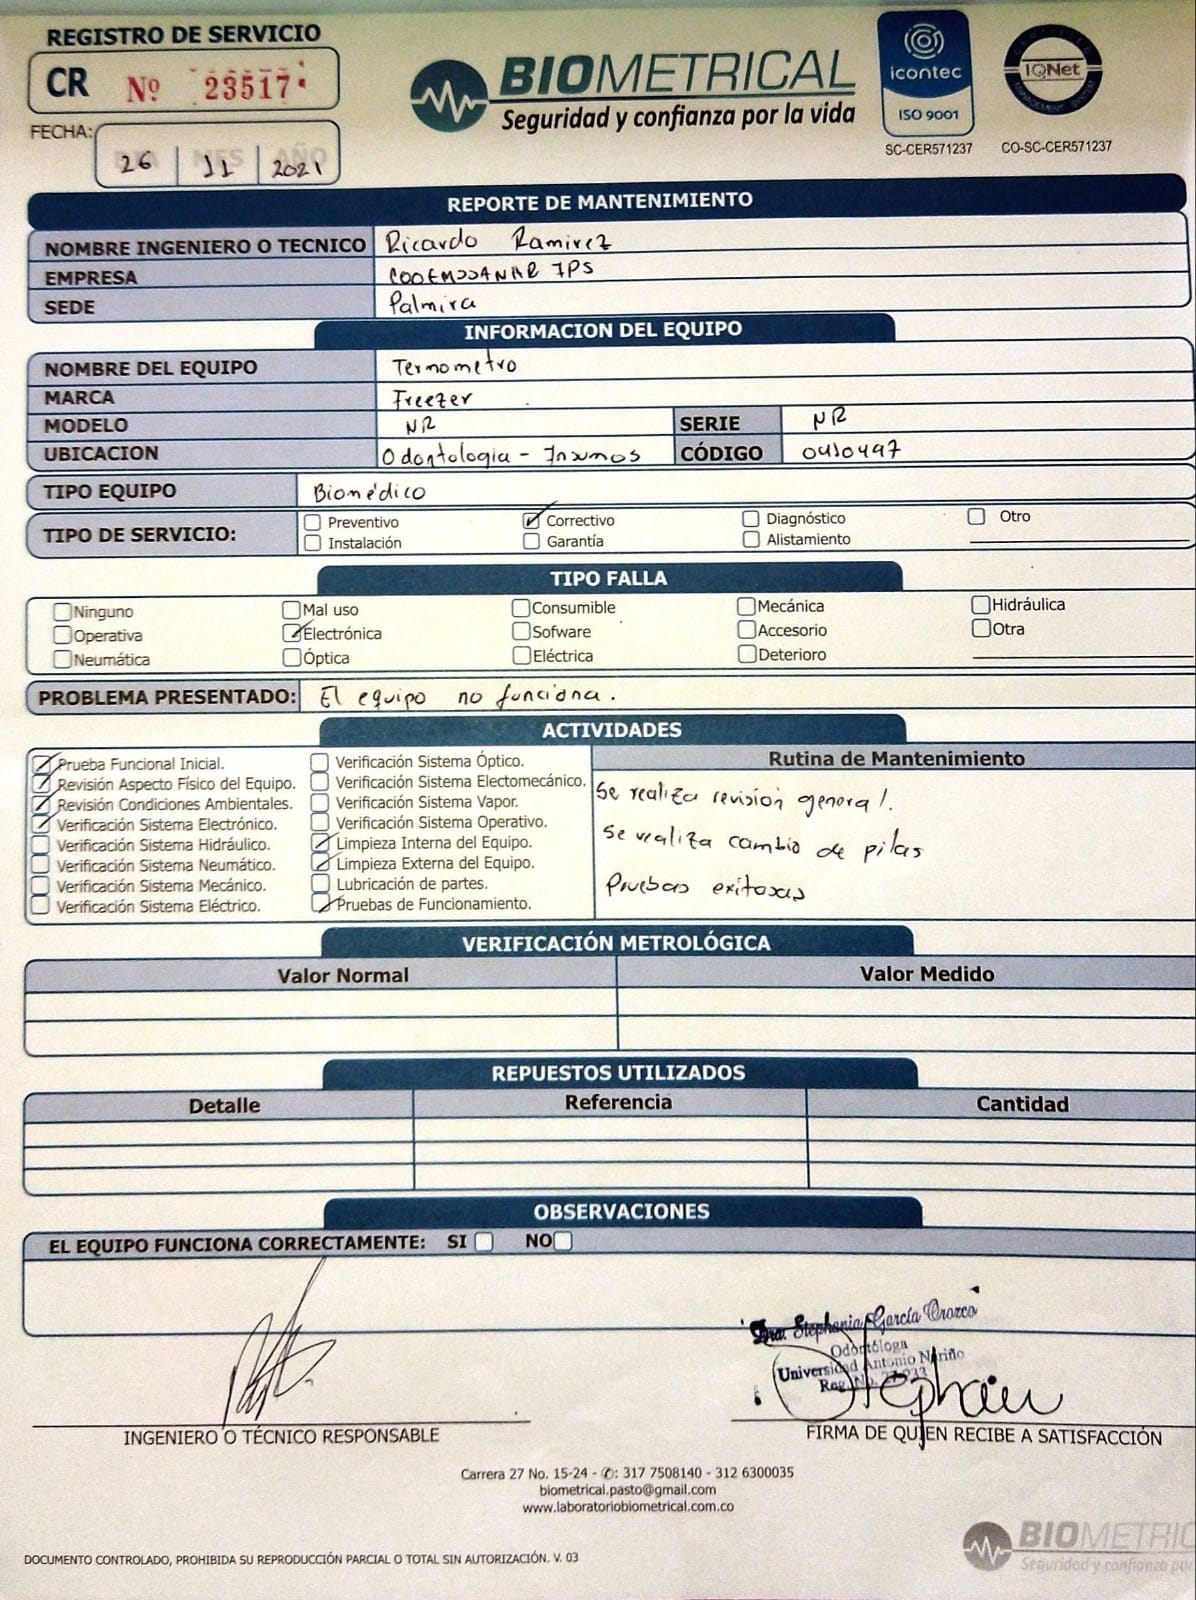 REGISTRO DE SERVICIO
CR Nº 23517
FECHA:
DIA MES AÑO
26 11 2021
BIOMETRICAL
Seguridad y confianza por la vida
icontec
ISO 9001
SC-CER571237
IQNet
MANAGEMENT SYSTEM
CO-SC-CER571237
REPORTE DE MANTENIMIENTO
NOMBRE INGENIERO O TECNICO Ricardo Ramirez
EMPRESA COOEMSSANAR IPS
SEDE Palmira
INFORMACION DEL EQUIPO
NOMBRE DEL EQUIPO Termometro
MARCA Freezer
MODELO NR SERIE NR
UBICACION Odontologia - Insumos CÓDIGO 0410497
TIPO EQUIPO Biomédico
TIPO DE SERVICIO:
Preventivo Correctivo Diagnóstico Otro
Instalación Garantía Alistamiento
TIPO FALLA
Ninguno Mal uso Consumible Mecánica Hidráulica
Operativa Electrónica Sofware Accesorio Otra
Neumática Óptica Eléctrica Deterioro
PROBLEMA PRESENTADO: El equipo no funciona.
ACTIVIDADES
Prueba Funcional Inicial.
Revisión Aspecto Físico del Equipo.
Revisión Condiciones Ambientales.
Verificación Sistema Electrónico.
Verificación Sistema Hidráulico.
Verificación Sistema Neumático.
Verificación Sistema Mecánico.
Verificación Sistema Eléctrico.
Verificación Sistema Óptico.
Verificación Sistema Electomecánico.
Verificación Sistema Vapor.
Verificación Sistema Operativo.
Limpieza Interna del Equipo.
Limpieza Externa del Equipo.
Lubricación de partes.
Pruebas de Funcionamiento.
Rutina de Mantenimiento
Se realiza revisión general.
Se realiza cambio de pilas
Pruebas exitosas
VERIFICACIÓN METROLÓGICA
Valor Normal Valor Medido
REPUESTOS UTILIZADOS
Detalle Referencia Cantidad
OBSERVACIONES
EL EQUIPO FUNCIONA CORRECTAMENTE: SI NO
Dra. Stephania García Orozco
Odontóloga
Universidad Antonio Nariño
Reg. No.
Stephain
INGENIERO O TÉCNICO RESPONSABLE
FIRMA DE QUIEN RECIBE A SATISFACCIÓN
Carrera 27 No. 15-24 - ✆: 317 7508140 - 312 6300035
biometrical.pasto@gmail.com
www.laboratoriobiometrical.com.co
DOCUMENTO CONTROLADO, PROHIBIDA SU REPRODUCCIÓN PARCIAL O TOTAL SIN AUTORIZACIÓN. V. 03
BIOMETRIC
Seguridad y confianza por